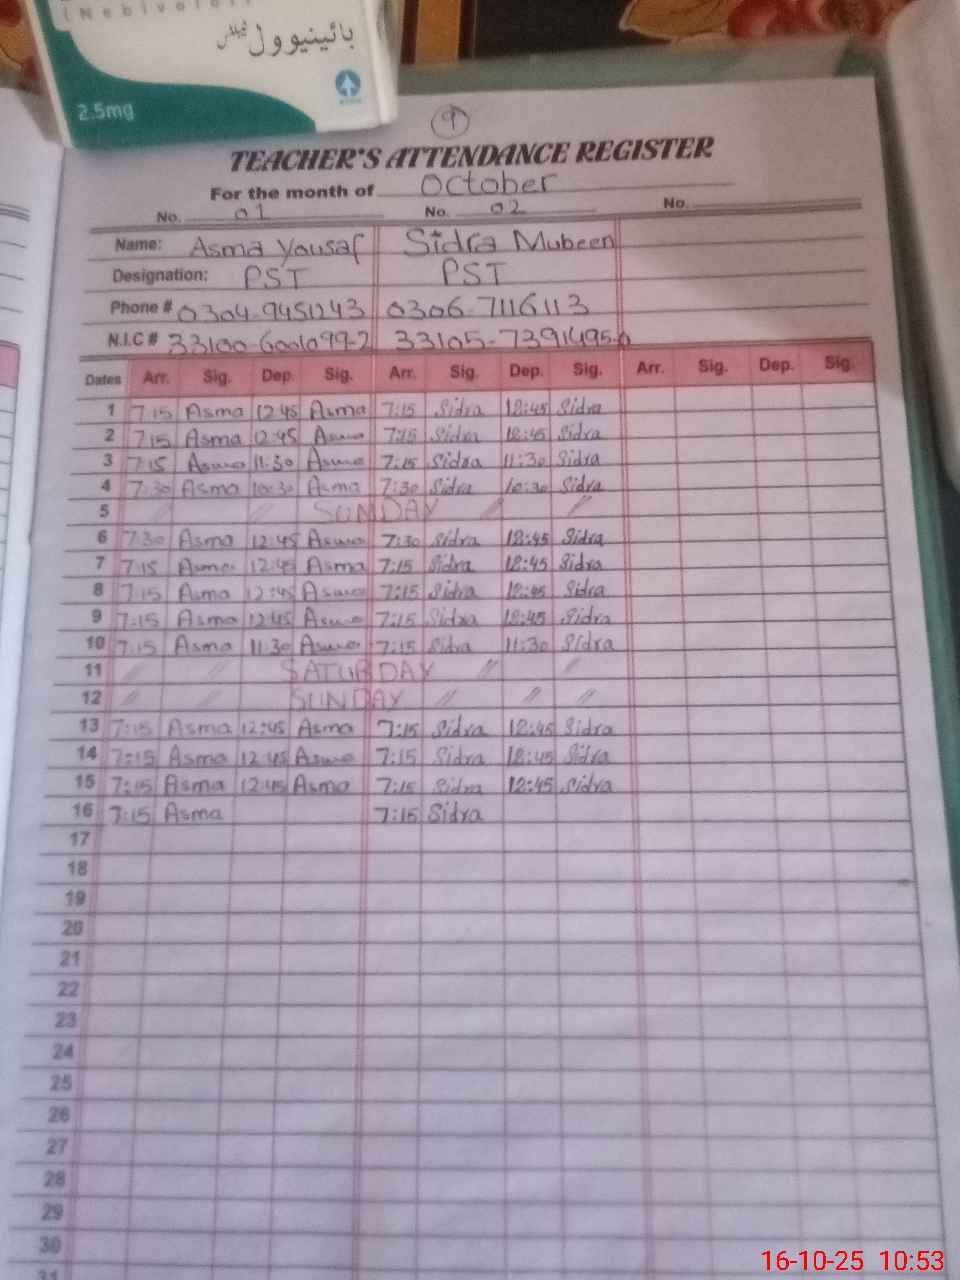 (Nebivolol)
بائینیوول
2.5mg
9
TEACHER'S ATTENDANCE REGISTER
For the month of October
No. 01 No. 02 No.
Name: Asma Yousaf Sidra Mubeen
Designation: PST PST
Phone # 0304-9451243 0306-7116113
N.I.C # 33105-7391495-0
Dates Arr. Sig. Dep. Sig. Arr. Sig. Dep. Sig. Arr. Sig. Dep. Sig.
1 7:15 Asma 12:45 Asma 7:15 Sidra 12:45 Sidra
2 7:15 Asma 12:45 Asma 7:15 Sidra 12:45 Sidra
3 7:15 Asma 11:30 Asma 7:15 Sidra 11:30 Sidra
4 7:30 Asma 10:30 Asma 7:30 Sidra 10:30 Sidra
5 // // SUNDAY // //
6 7:30 Asma 12:45 Asma 7:30 Sidra 12:45 Sidra
7 7:15 Asma 12:45 Asma 7:15 Sidra 12:45 Sidra
8 7:15 Asma 12:45 Asma 7:15 Sidra 12:45 Sidra
9 7:15 Asma 12:45 Asma 7:15 Sidra 12:45 Sidra
10 7:15 Asma 11:30 Asma 7:15 Sidra 11:30 Sidra
11 // // SATURDAY // //
12 // // SUNDAY // // //
13 7:15 Asma 12:45 Asma 7:15 Sidra 12:45 Sidra
14 7:15 Asma 12:45 Asma 7:15 Sidra 12:45 Sidra
15 7:15 Asma 12:45 Asma 7:15 Sidra 12:45 Sidra
16 7:15 Asma 7:15 Sidra
17
18
19
20
21
22
23
24
25
26
27
28
29
30
31
16-10-25 10:53